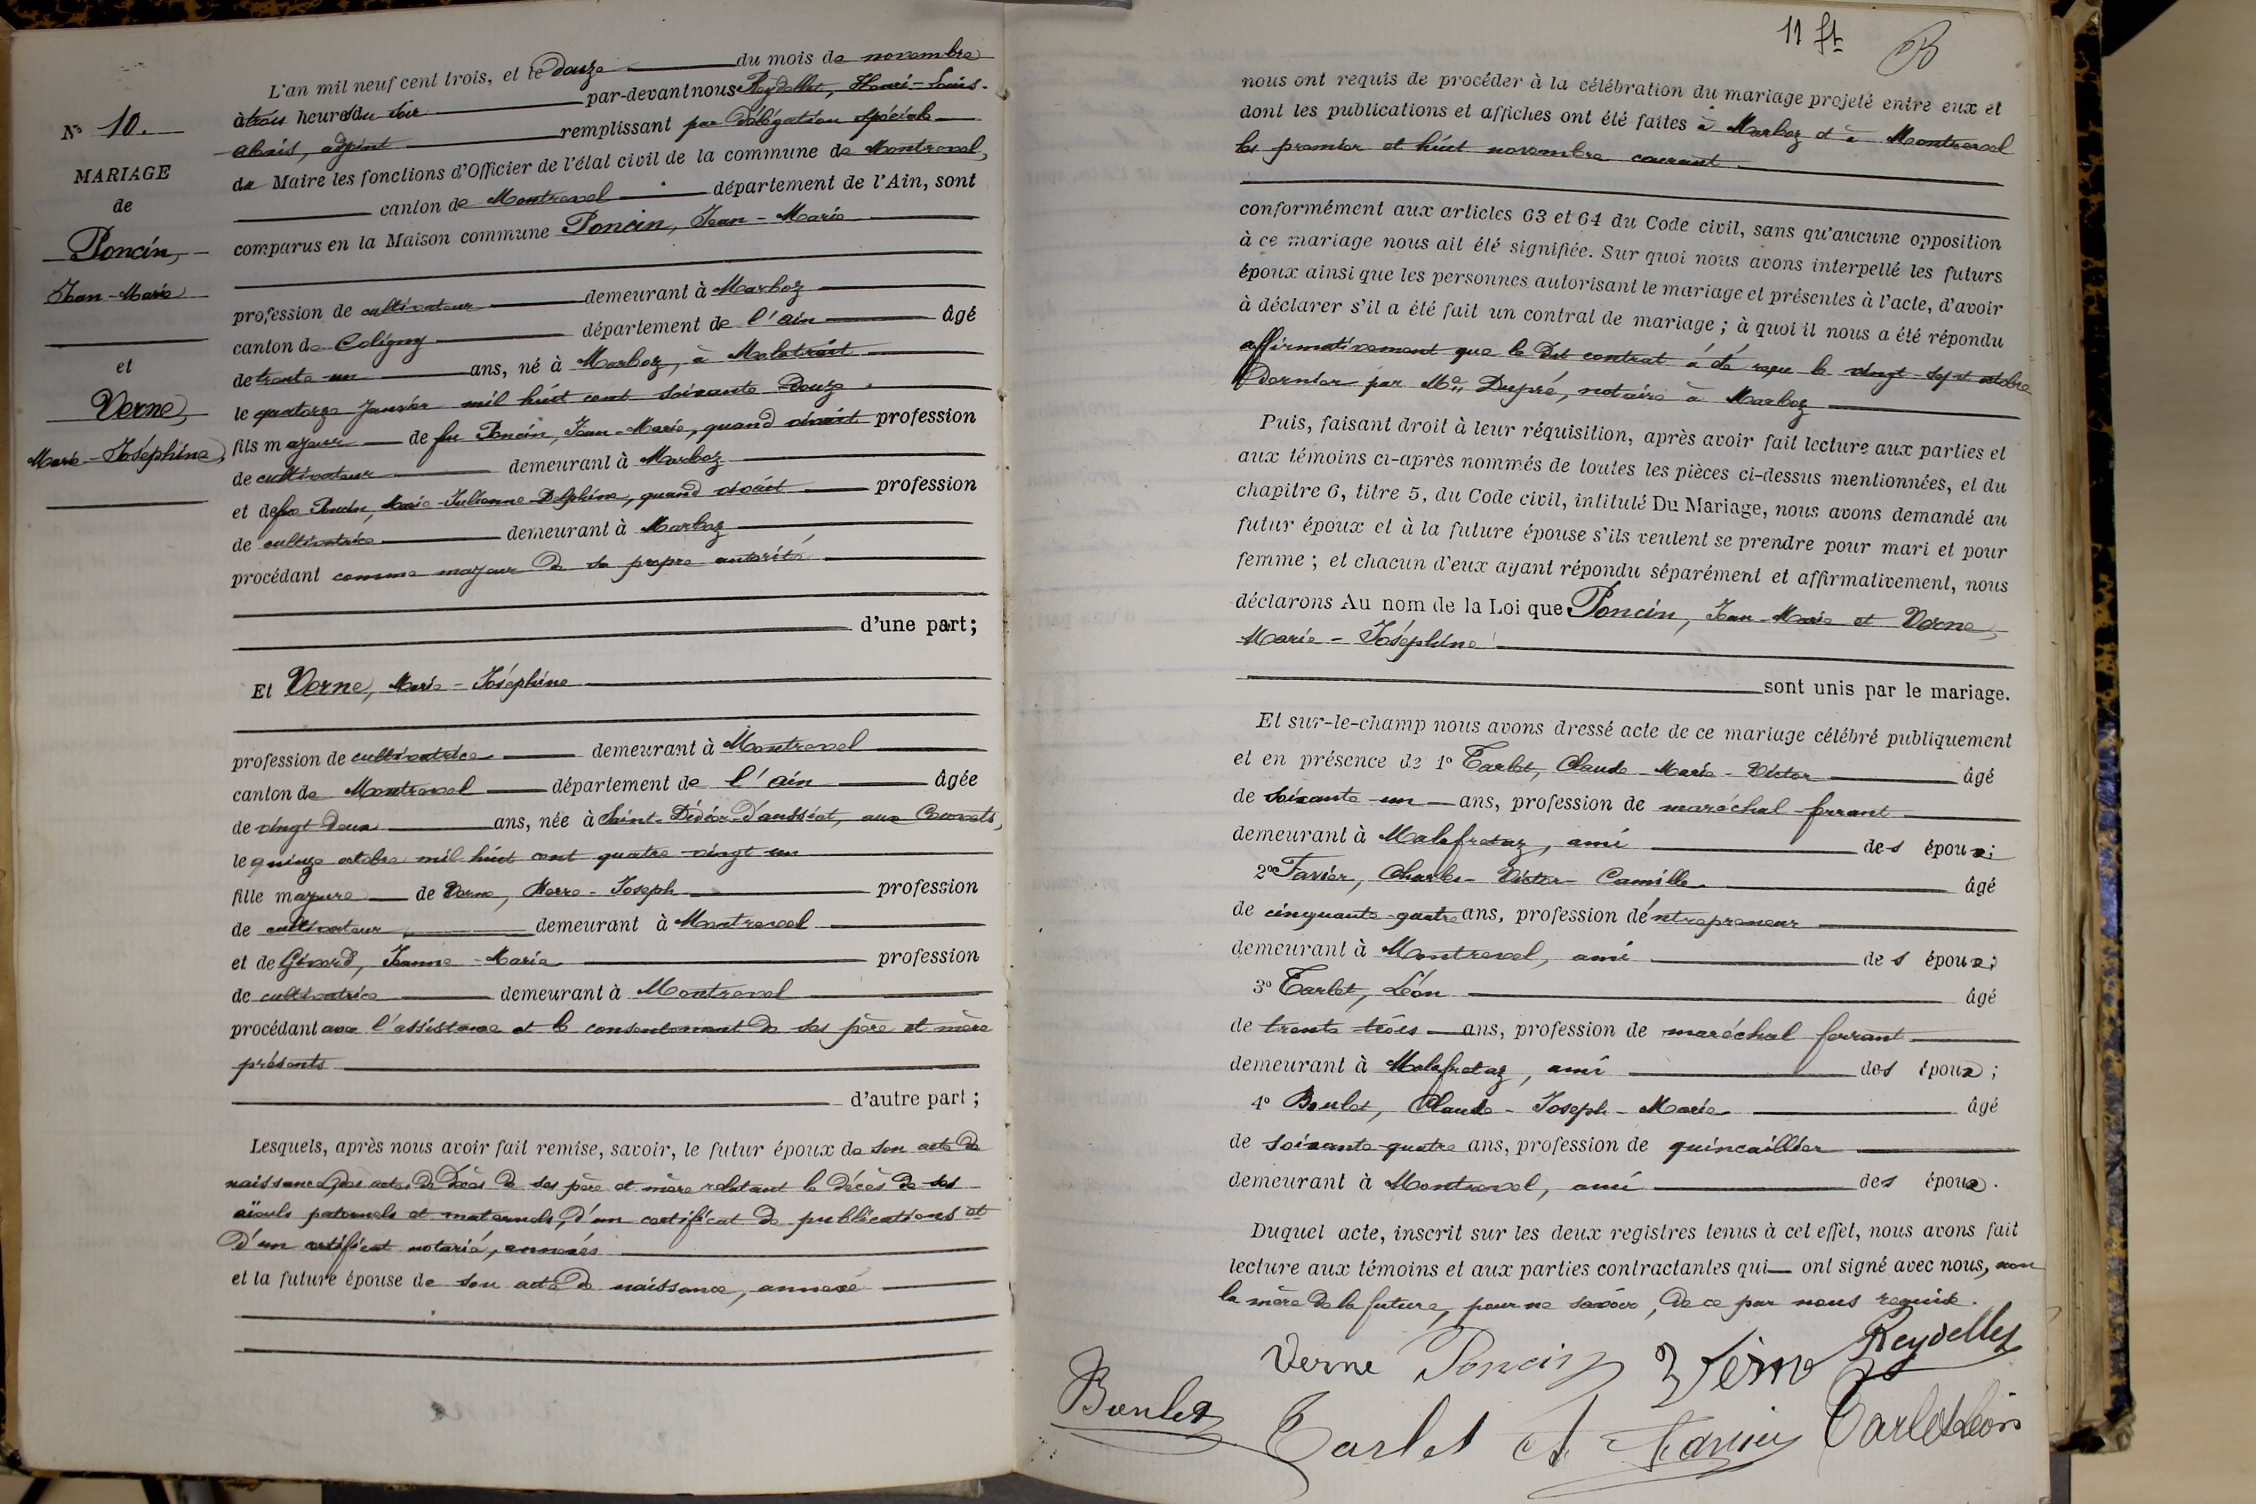 L'an mil neuf cent trois, et le douze du mois de novembre
à trois heures du soir par-devant nous Reydellet, Henri-Louis-
Alexis, adjoint remplissant par délégation spéciale
du Maire les fonctions d'Officier de l'état civil de la commune de Montrevel,
canton de Montrevel département de l'Ain, sont
comparus en la Maison commune Poncin, Jean-Marie
N° 10.
MARIAGE
de
Poncin,
Jean-Marie
et
Verne,
Marie-Joséphine,
profession de cultivateur demeurant à Marboz
canton de Coligny département de l'ain âgé
de trente-un ans, né à Marboz, à Malatrait
le quatorze Janvier mil huit cent soixante-douze.
fils majeur de feu Poncin, Jean-Marie, quand vivait profession
de cultivateur demeurant à Marboz
et de feue Poncin, Marie-Julienne-Delphine, quand vivait profession
de cultivatrice demeurant à Marboz
procédant comme majeur de sa propre autorité
d'une part;
Et Verne, Marie-Joséphine
profession de cultivatrice demeurant à Montrevel
canton de Montrevel département de l'ain âgée
de vingt deux ans, née à Saint-Didier-d'aussiat, aux
le quinze octobre mil huit cent quatre-vingt-un
fille majeure de Verne, Pierre-Joseph profession
de cultivateur demeurant à Montrevel
et de Givord, Jeanne-Marie profession
de cultivatrice demeurant à Montrevel
procédant avec l'assistance et le consentement de ses père et mère
présents
d'autre part;
Lesquels, après nous avoir fait remise, savoir, le futur époux de son acte de
naissance, des actes de décès de ses père et mère relatant le décès de ses
aïeuls paternels et maternels, d'un certificat de publications et
d'un certificat notarié, annexés
et la future épouse de son acte de naissance, annexé
11 ft
nous ont requis de procéder à la célébration du mariage projeté entre eux et
dont les publications et affiches ont été faites à Marboz et à Montrevel
les premier et huit novembre courant
conformément aux articles 63 et 64 du Code civil, sans qu'aucune opposition
à ce mariage nous ait été signifiée. Sur quoi nous avons interpellé les futurs
époux ainsi que les personnes autorisant le mariage et présentes à l'acte, d'avoir
à déclarer s'il a été fait un contrat de mariage; à quoi il nous a été répondu
affirmativement que le dit contrat a été reçu le vingt-sept octobre
dernier par Me Dupré, notaire à Marboz
Puis, faisant droit à leur réquisition, après avoir fait lecture aux parties et
aux témoins ci-après nommés de toutes les pièces ci-dessus mentionnées, et du
chapitre 6, titre 5, du Code civil, intitulé Du Mariage, nous avons demandé au
futur époux et à la future épouse s'ils veulent se prendre pour mari et pour
femme; et chacun d'eux ayant répondu séparément et affirmativement, nous
déclarons Au nom de la Loi que Poncin, Jean-Marie et Verne,
Marie-Joséphine
sont unis par le mariage.
Et sur-le-champ nous avons dressé acte de ce mariage célébré publiquement
et en présence de 1° Tarlet, Claude-Marie-Victor âgé
de soixante-un ans, profession de maréchal-ferrant
demeurant à Malafretaz, ami des époux;
2° Favier, Charles-Victor-Camille âgé
de cinquante-quatre ans, profession d'entrepreneur
demeurant à Montrevel, ami des époux;
3° Tarlet, Léon âgé
de trente trois ans, profession de maréchal ferrant
demeurant à Malafretaz, ami des époux;
4° Boulet, Claude-Joseph-Marie âgé
de soixante-quatre ans, profession de quincaillier
demeurant à Montrevel, ami des époux.
Duquel acte, inscrit sur les deux registres tenus à cet effet, nous avons fait
lecture aux témoins et aux parties contractantes qui ont signé avec nous, non
la mère de la future, pour ne savoir, de ce par nous requise.
Verne Poncin Verne Reydellet
Boulet Tarlet Favier Tarlet Léon